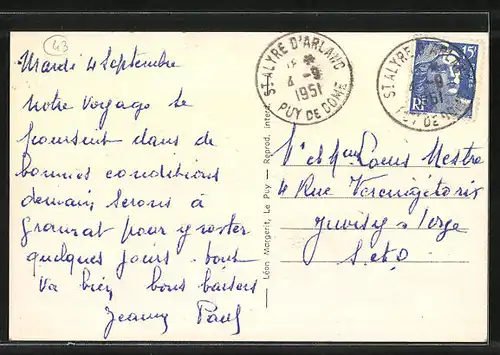 43
Mardi 4 Septembre
Notre voyage se
poursuit dans de
bonnes conditions
demain, serons à
pour y rester
quelques jours. tout
va bien, bons baisers
Jeanny Paul
ST ALYRE D'ARLANC
4 -9
1951
PUY DE DOME
Léon Margerit, Le Puy — Reprod. interd.
ST ALYRE D'ARLANC
-9
1951
PUY DE DOME
15F
RF
Mr et Mme Louis Mestre
4 Rue Vercingétorix
Juvisy s/ Orge
S. et O.